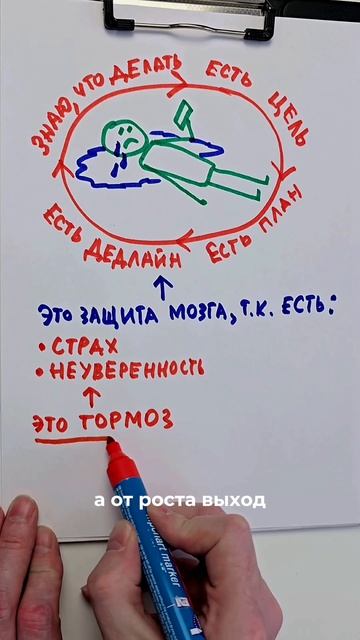 ЗНАЮ, ЧТО ДЕЛАТЬ
ЕСТЬ ЦЕЛЬ
ЕСТЬ ПЛАН
ЕСТЬ ДЕДЛАЙН
ЭТО ЗАЩИТА МОЗГА, Т.К. ЕСТЬ:
• СТРАХ
• НЕУВЕРЕННОСТЬ
ЭТО ТОРМОЗ
а от роста выход
flipchart marker